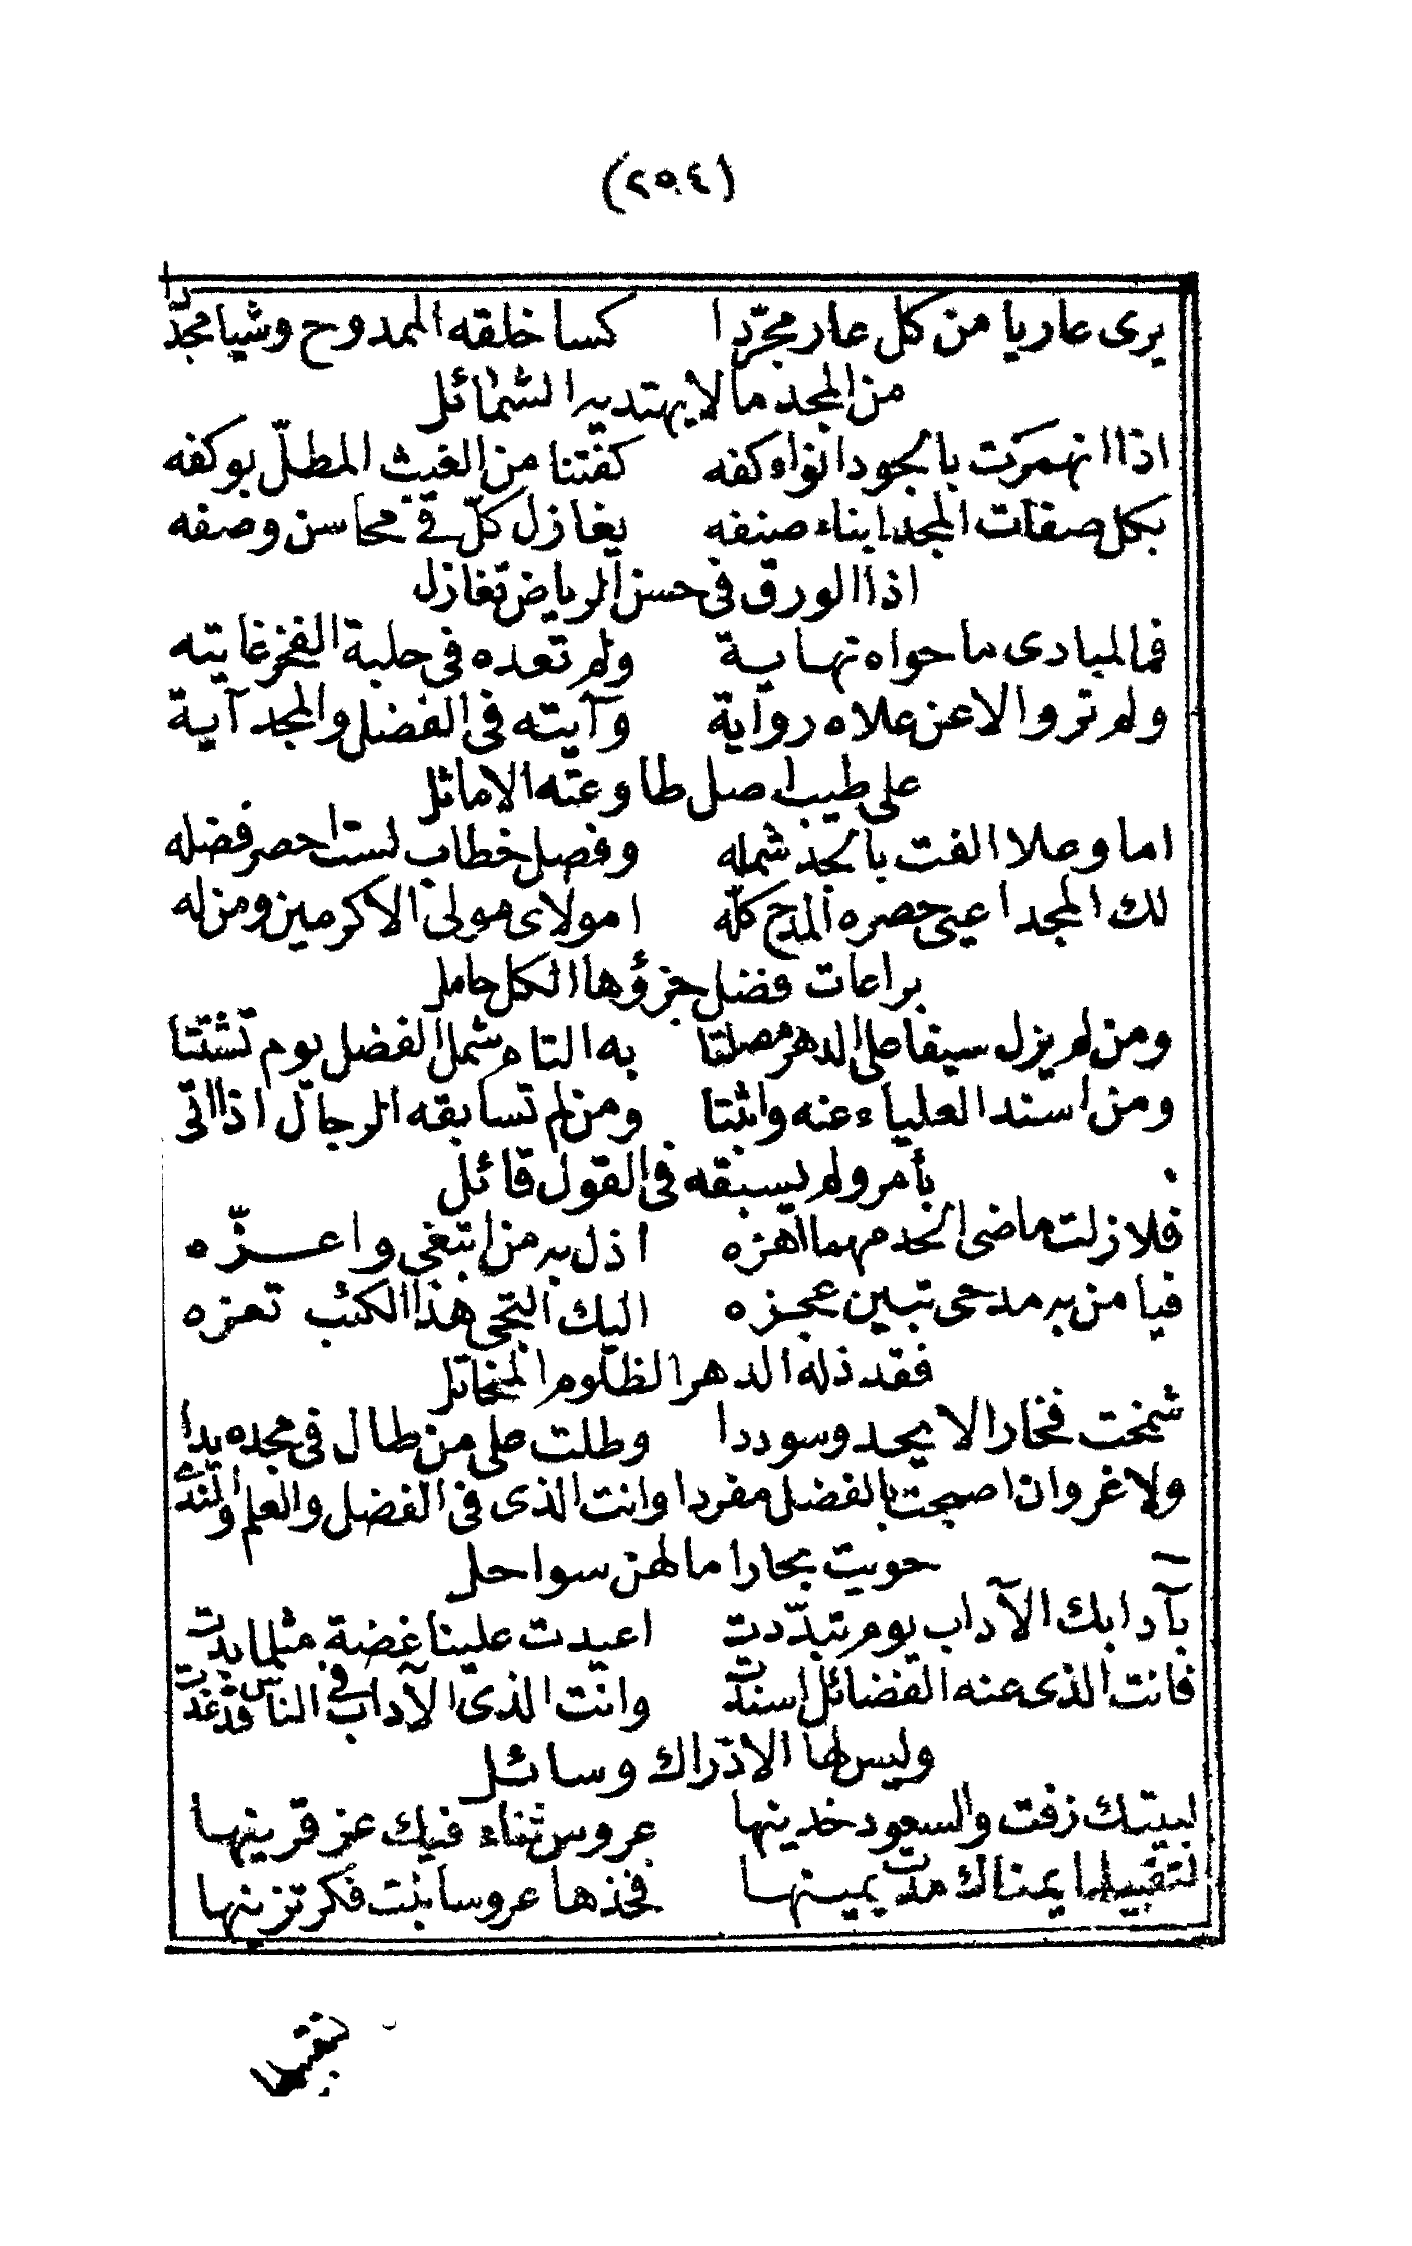 (٢٥٤)
يرى عاريا من كل عار مجرّدا كسا خلقه الممدوح وشيا مجدّدا
من المجد ما لا يهتديه الشمائل
اذا انهمرت بالجود انواء كفه كفتنا من الغيث المطلّ بوكفه
بكل صفات المجد ابناء صنفه يغازل كلّ في محاسن وصفه
اذا الورق في حسن الرياض تغازل
فما لمبادى ما حواه نهاية ولم تعده في حلبة الفخر غايته
ولم تروا الا عن علاه رواية وآيته في الفضل والمجد آية
على طيب اصل طاوعته الاماثل
اما وعلا الفت بالجد شمله وفصل خطاب لست احصر فضله
لك المجد اعيى حصره المدح كلّه امولاى مولى الاكرمين ومن له
براعات فضل جزؤها الكل حامل
ومن لم يزل سيفا على الدهر مصلتا به التاه شمل الفضل يوم تشتتا
ومن اسند العلياء عنه واثبتا ومن لم تسابقه الرجال اذا اتى
بأمر ولم يسبقه في القول قائل
فلا زلت ماضى الحد مهما اهزه اذل به من ابتغى واعــزّه
فيا من به مدحى تبين عجزه اليك التجى هذا الكئب تعزه
فقد ذله الدهر الظلوم المخاتل
شمخت فخارا لا يحد وسوددا وطلت على من طال في مجده يدا
ولا غروان اصبحت بالفضل مفردا وانت الذى في الفضل والعلم والندى
حويت بحارا ما لهن سواحل
بآدابك الآداب يوم تبدّدت اعيدت علينا غضة مثلما بدت
فانت الذى عنه الفضائل اسندت وانت الذى الآداب في الناس قد غدت
وليس لها الا ذراك وسائل
لبيتك زفت والسعود خدينها عروس ثناء فيك عز قرينها
لتقبيلها يمناك مدت يمينها فخذها عروسا بنت فكر تزينها